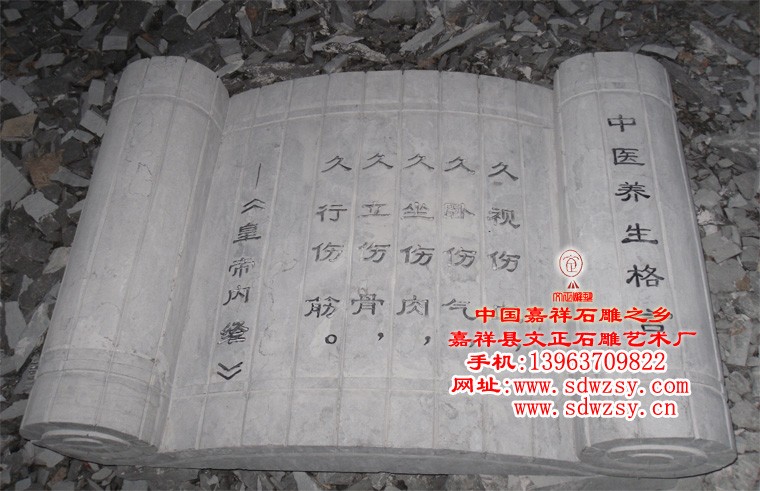 中医养生格言
久视伤
久卧伤气
久坐伤肉，
久立伤骨，
久行伤筋。
—《皇帝内經》
文正雕塑
中国嘉祥石雕之乡
嘉祥县文正石雕艺术厂
手机:13963709822
网址:www.sdwzsy.com
www.sdwzsy.cn